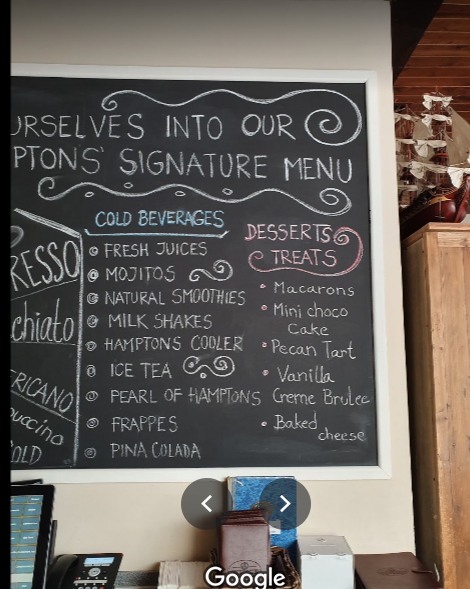 URSELVES INTO OUR
PTONS' SIGNATURE MENU
RESSO
chiato
RICANO
puccino
OLD
COLD BEVERAGES
FRESH JUICES
MOJITOS
NATURAL SMOOTHIES
MILK SHAKES
HAMPTONS COOLER
ICE TEA
PEARL OF HAMPTONS
FRAPPES
PINA COLADA
DESSERTS
TREATS
Macarons
Mini choco
Cake
Pecan Tart
Vanilla
Creme Brulee
Baked
cheese
Google